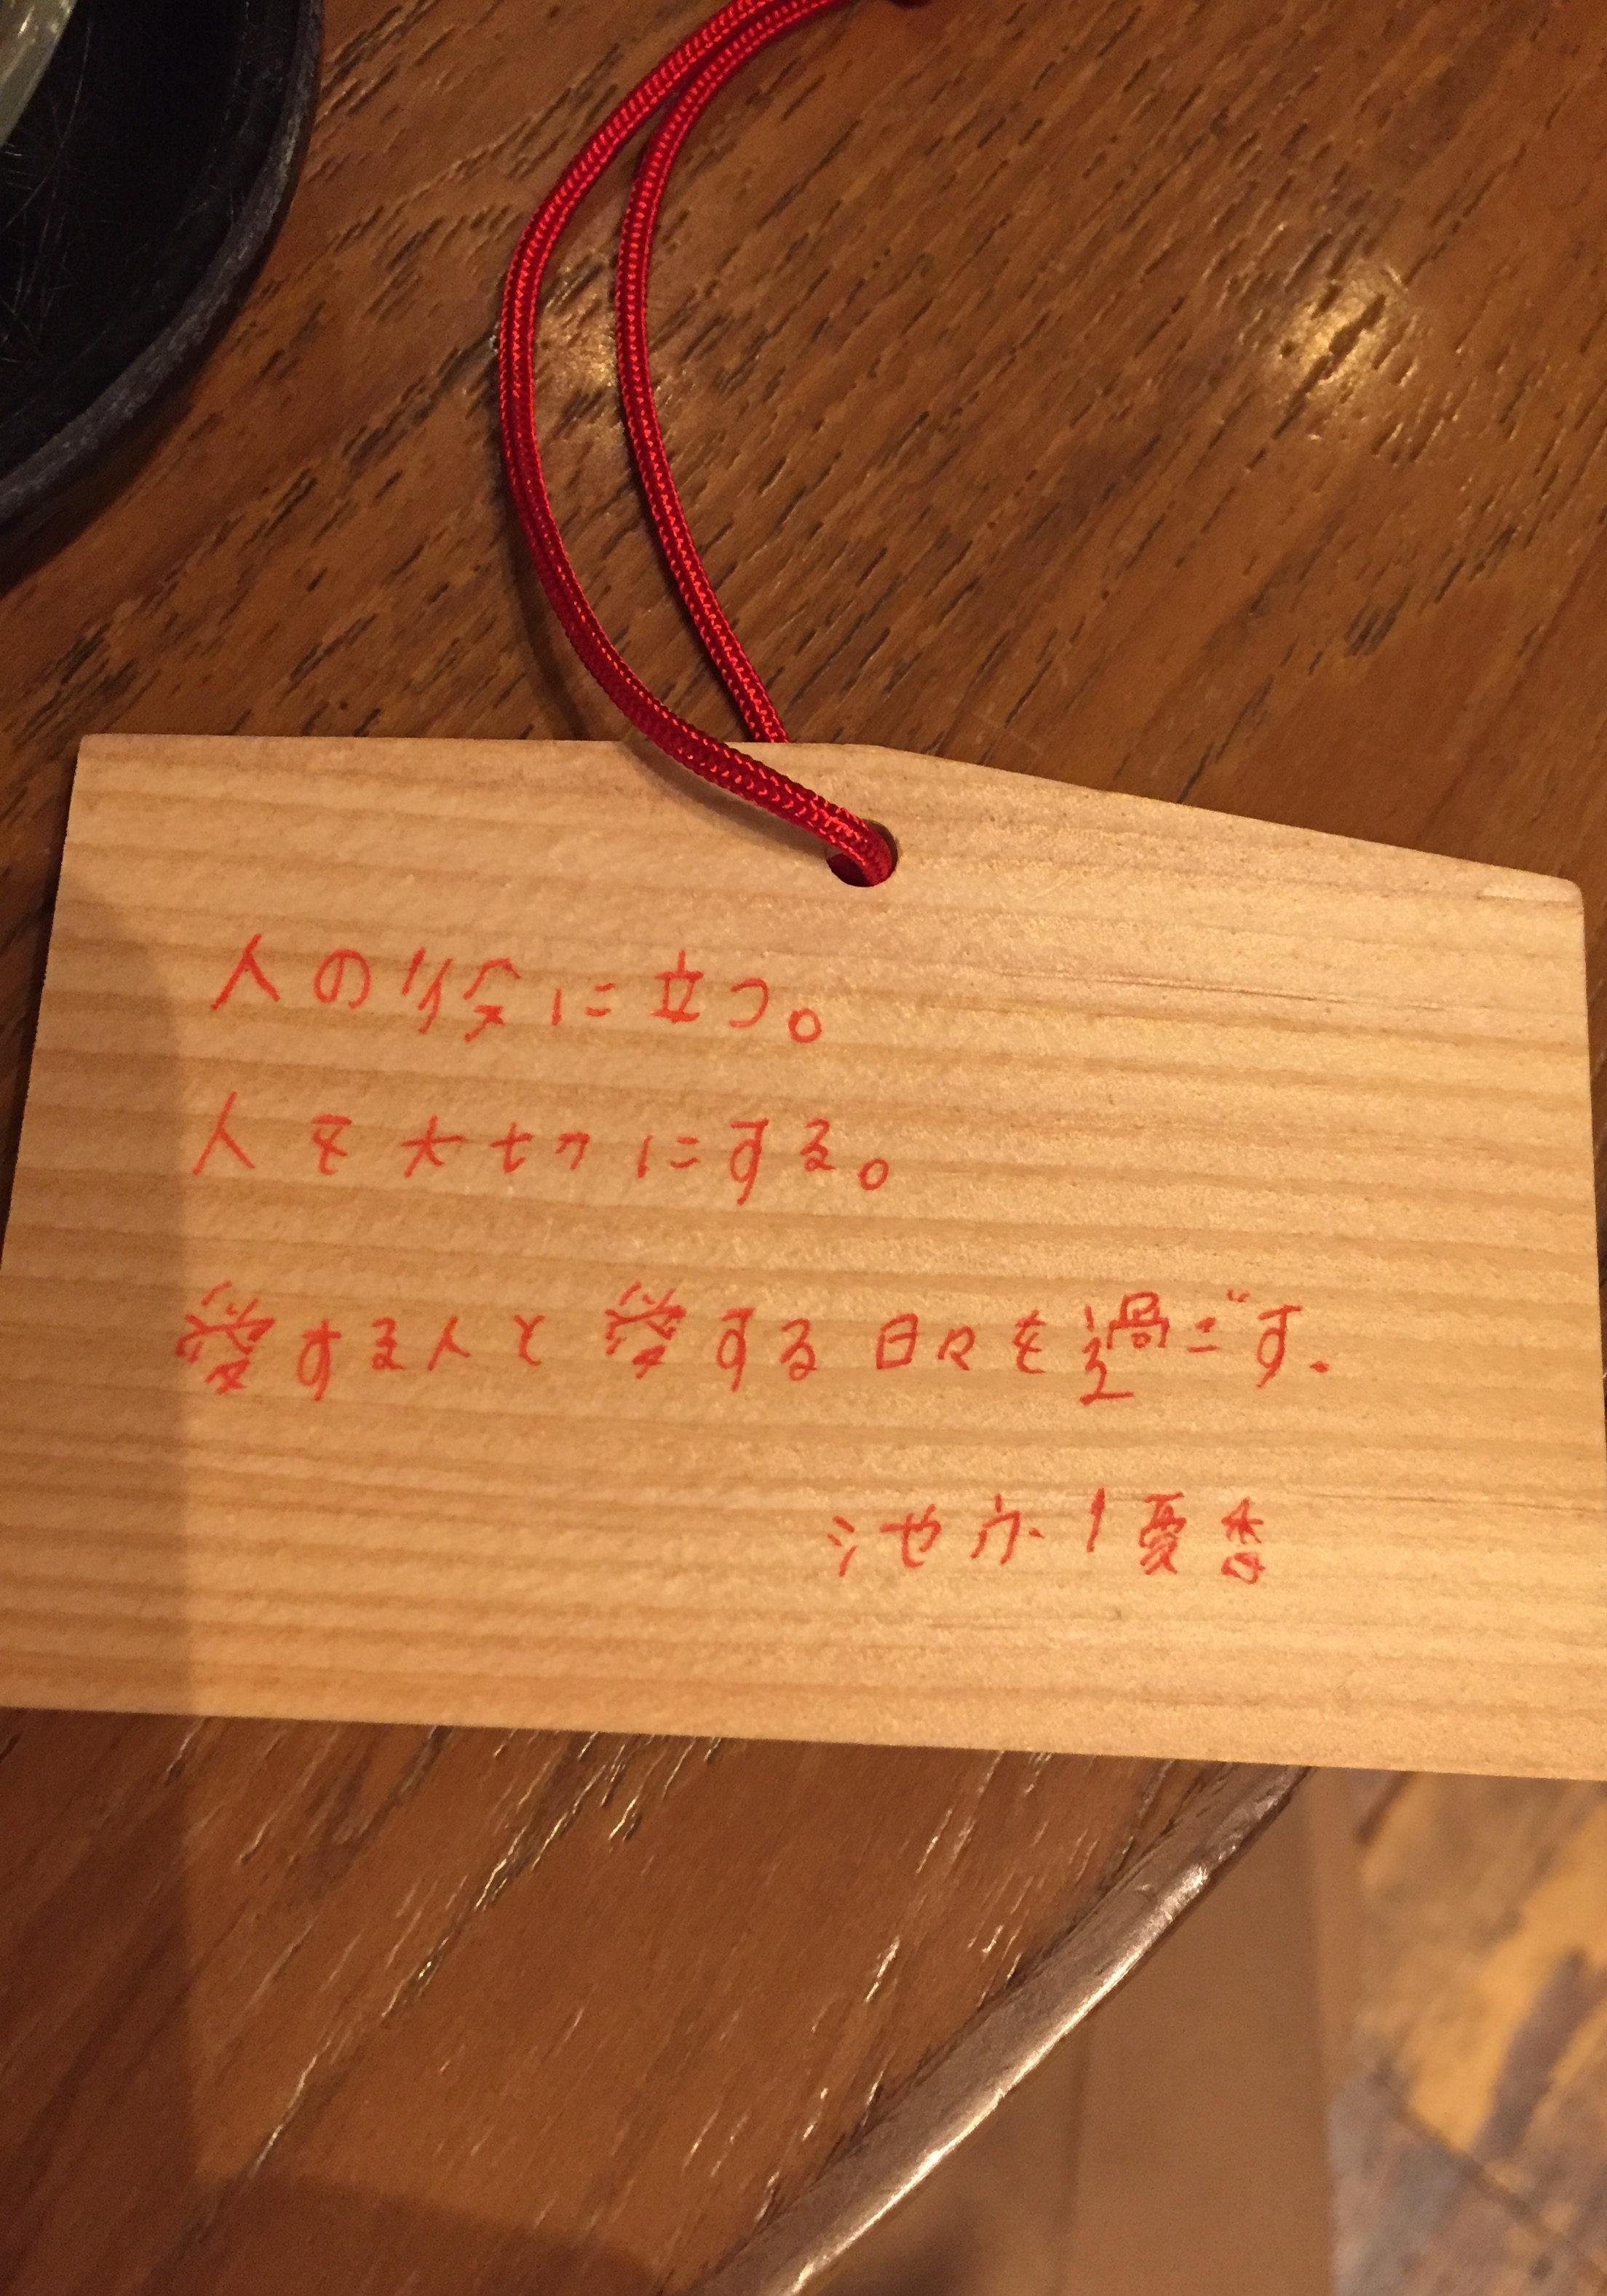 人の役に立つ。
人を大切にする。
愛する人と愛する日々を過ごす.
優香